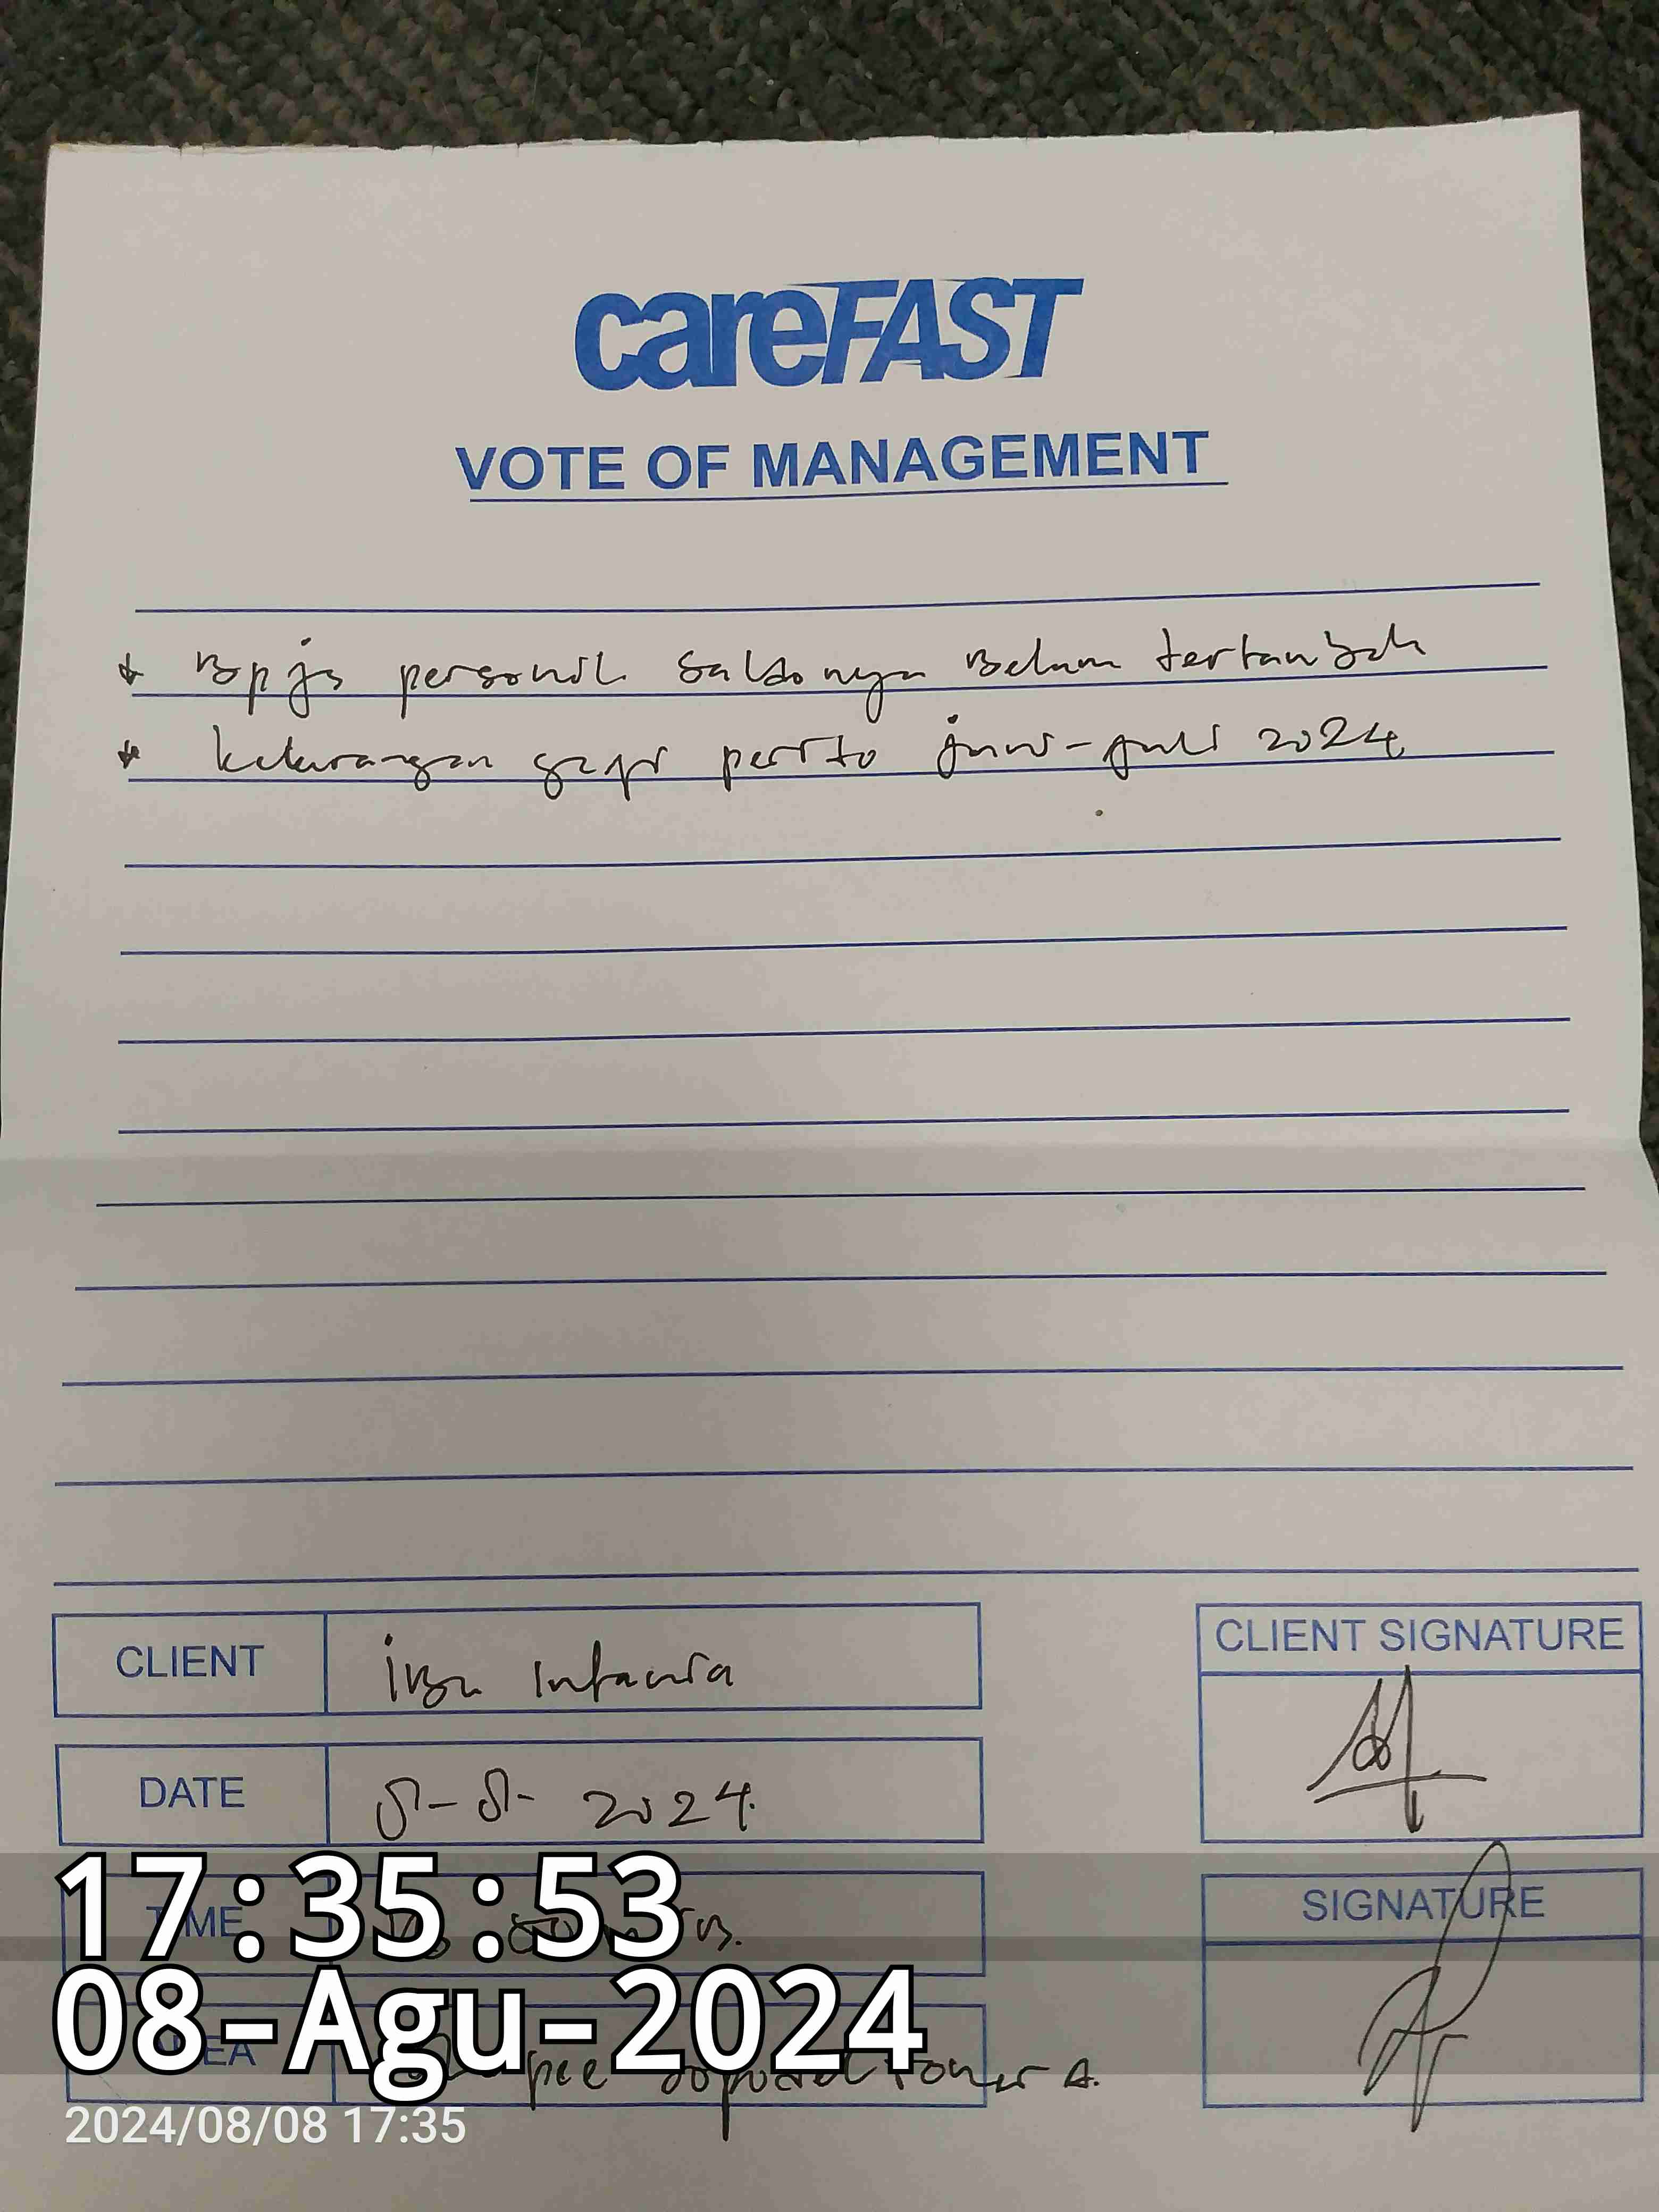 careFAST
VOTE OF MANAGEMENT
* Bpjs personil saldonya Belum tertambah
* kekurangan gaji perito juni-juli 2024
CLIENT
iBu Intania
CLIENT SIGNATURE
DATE
8-8-2024.
17:35:53
TIME
SIGNATURE
08-Agu-2024
tower A.
2024/08/08 17:35